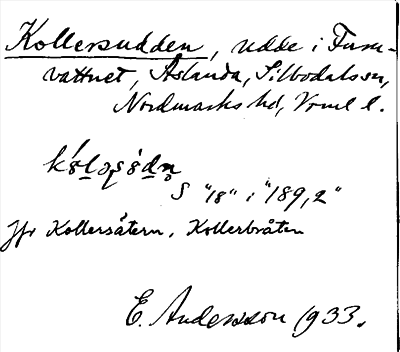 Kollersudden, udde i Furu-
vattnet, Åslanda, Silbodals sn,
Nordmarks hd, Vrml l.
S "18" i "189,2"
Jfr Kollersätern, Kollerbråten
E. Andersson 1933.